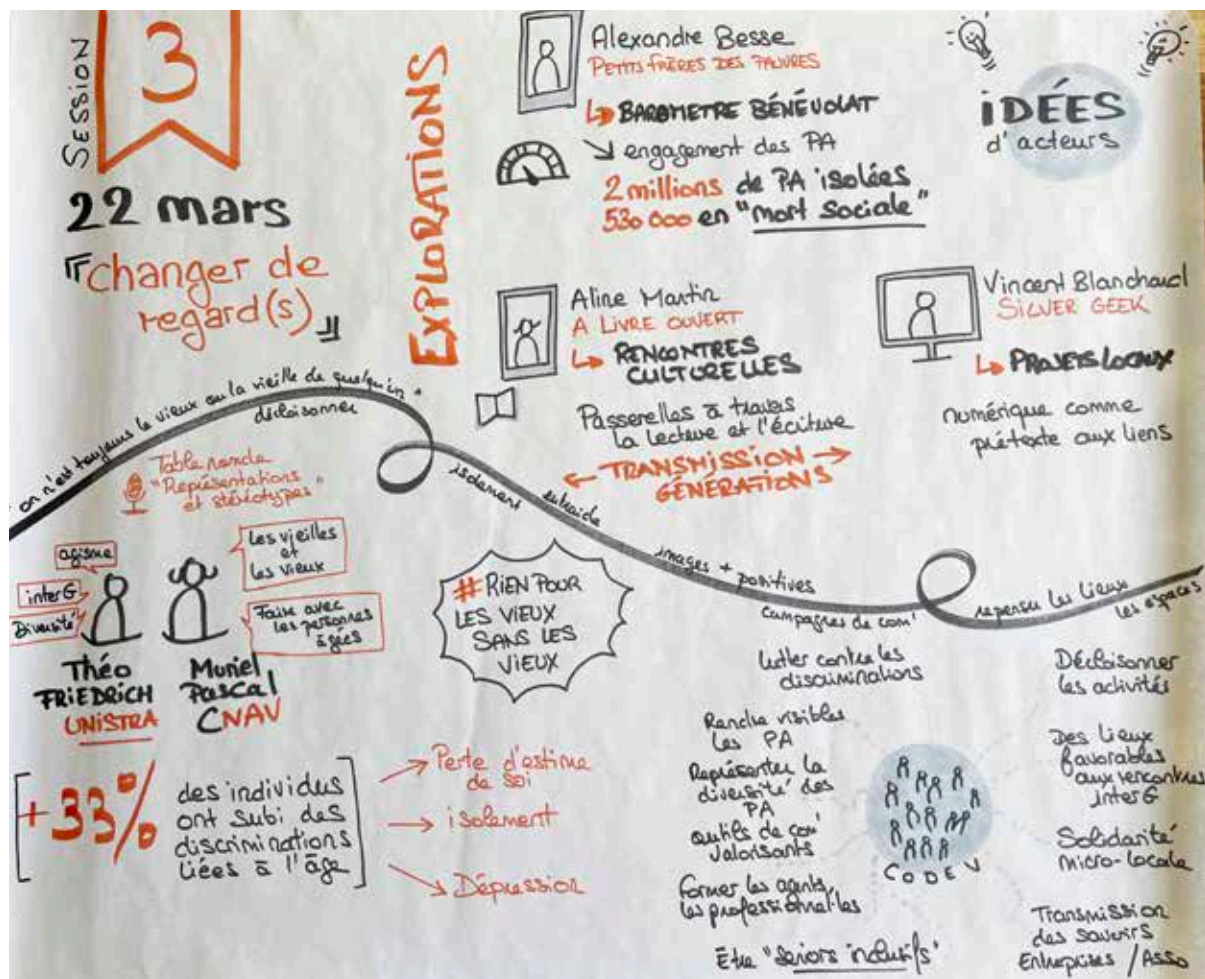 SESSION
3
22 mars
"changer de
regard(s)"
EXPLORATIONS
Alexandre Besse
PETITS FRÈRES DES PAUVRES
↳ BAROMETRE BÉNÉVOLAT
↘ engagement des PA
2 millions de PA isolées
530 000 en "mort sociale"
iDÉES
d'acteurs
Aline Martin
A LIVRE OUVERT
↳ RENCONTRES
CULTURELLES
Passerelles à travers
la lecture et l'écriture
← TRANSMISSION →
GÉNÉRATIONS
Vincent Blanchard
SILVER GEEK
↳ PROJETS LOCAUX
numérique comme
prétexte aux liens
on n'est toujours le vieux ou la vieille de quelqu'un
décloisonner
isolement
entraide
images + positives
campagnes de com'
repenser les lieux
les espaces
Table ronde
"Représentations
et stéréotypes"
agisme
interG
Diversité
Les vieilles
et
les vieux
Faire avec
les personnes
âgées
Théo
FRIEDRICH
UNISTRA
Muriel
Pascal
CNAV
# RIEN POUR
LES VIEUX
SANS LES
VIEUX
+33%
des individus
ont subi des
discriminations
liées à l'âge
→ Perte d'estime
de soi
→ isolement
→ Dépression
Lutter contre les
discriminations
Rendre visibles
les PA
Représenter la
diversité des
PA
outils de com'
valorisants
Former les agents,
les professionnel·les
Être "seniors inclusifs"
CODEV
Décloisonner
les activités
Des lieux
favorables
aux rencontres
interG
Solidarité
micro-locale
Transmission
des savoirs
Entreprises / Asso